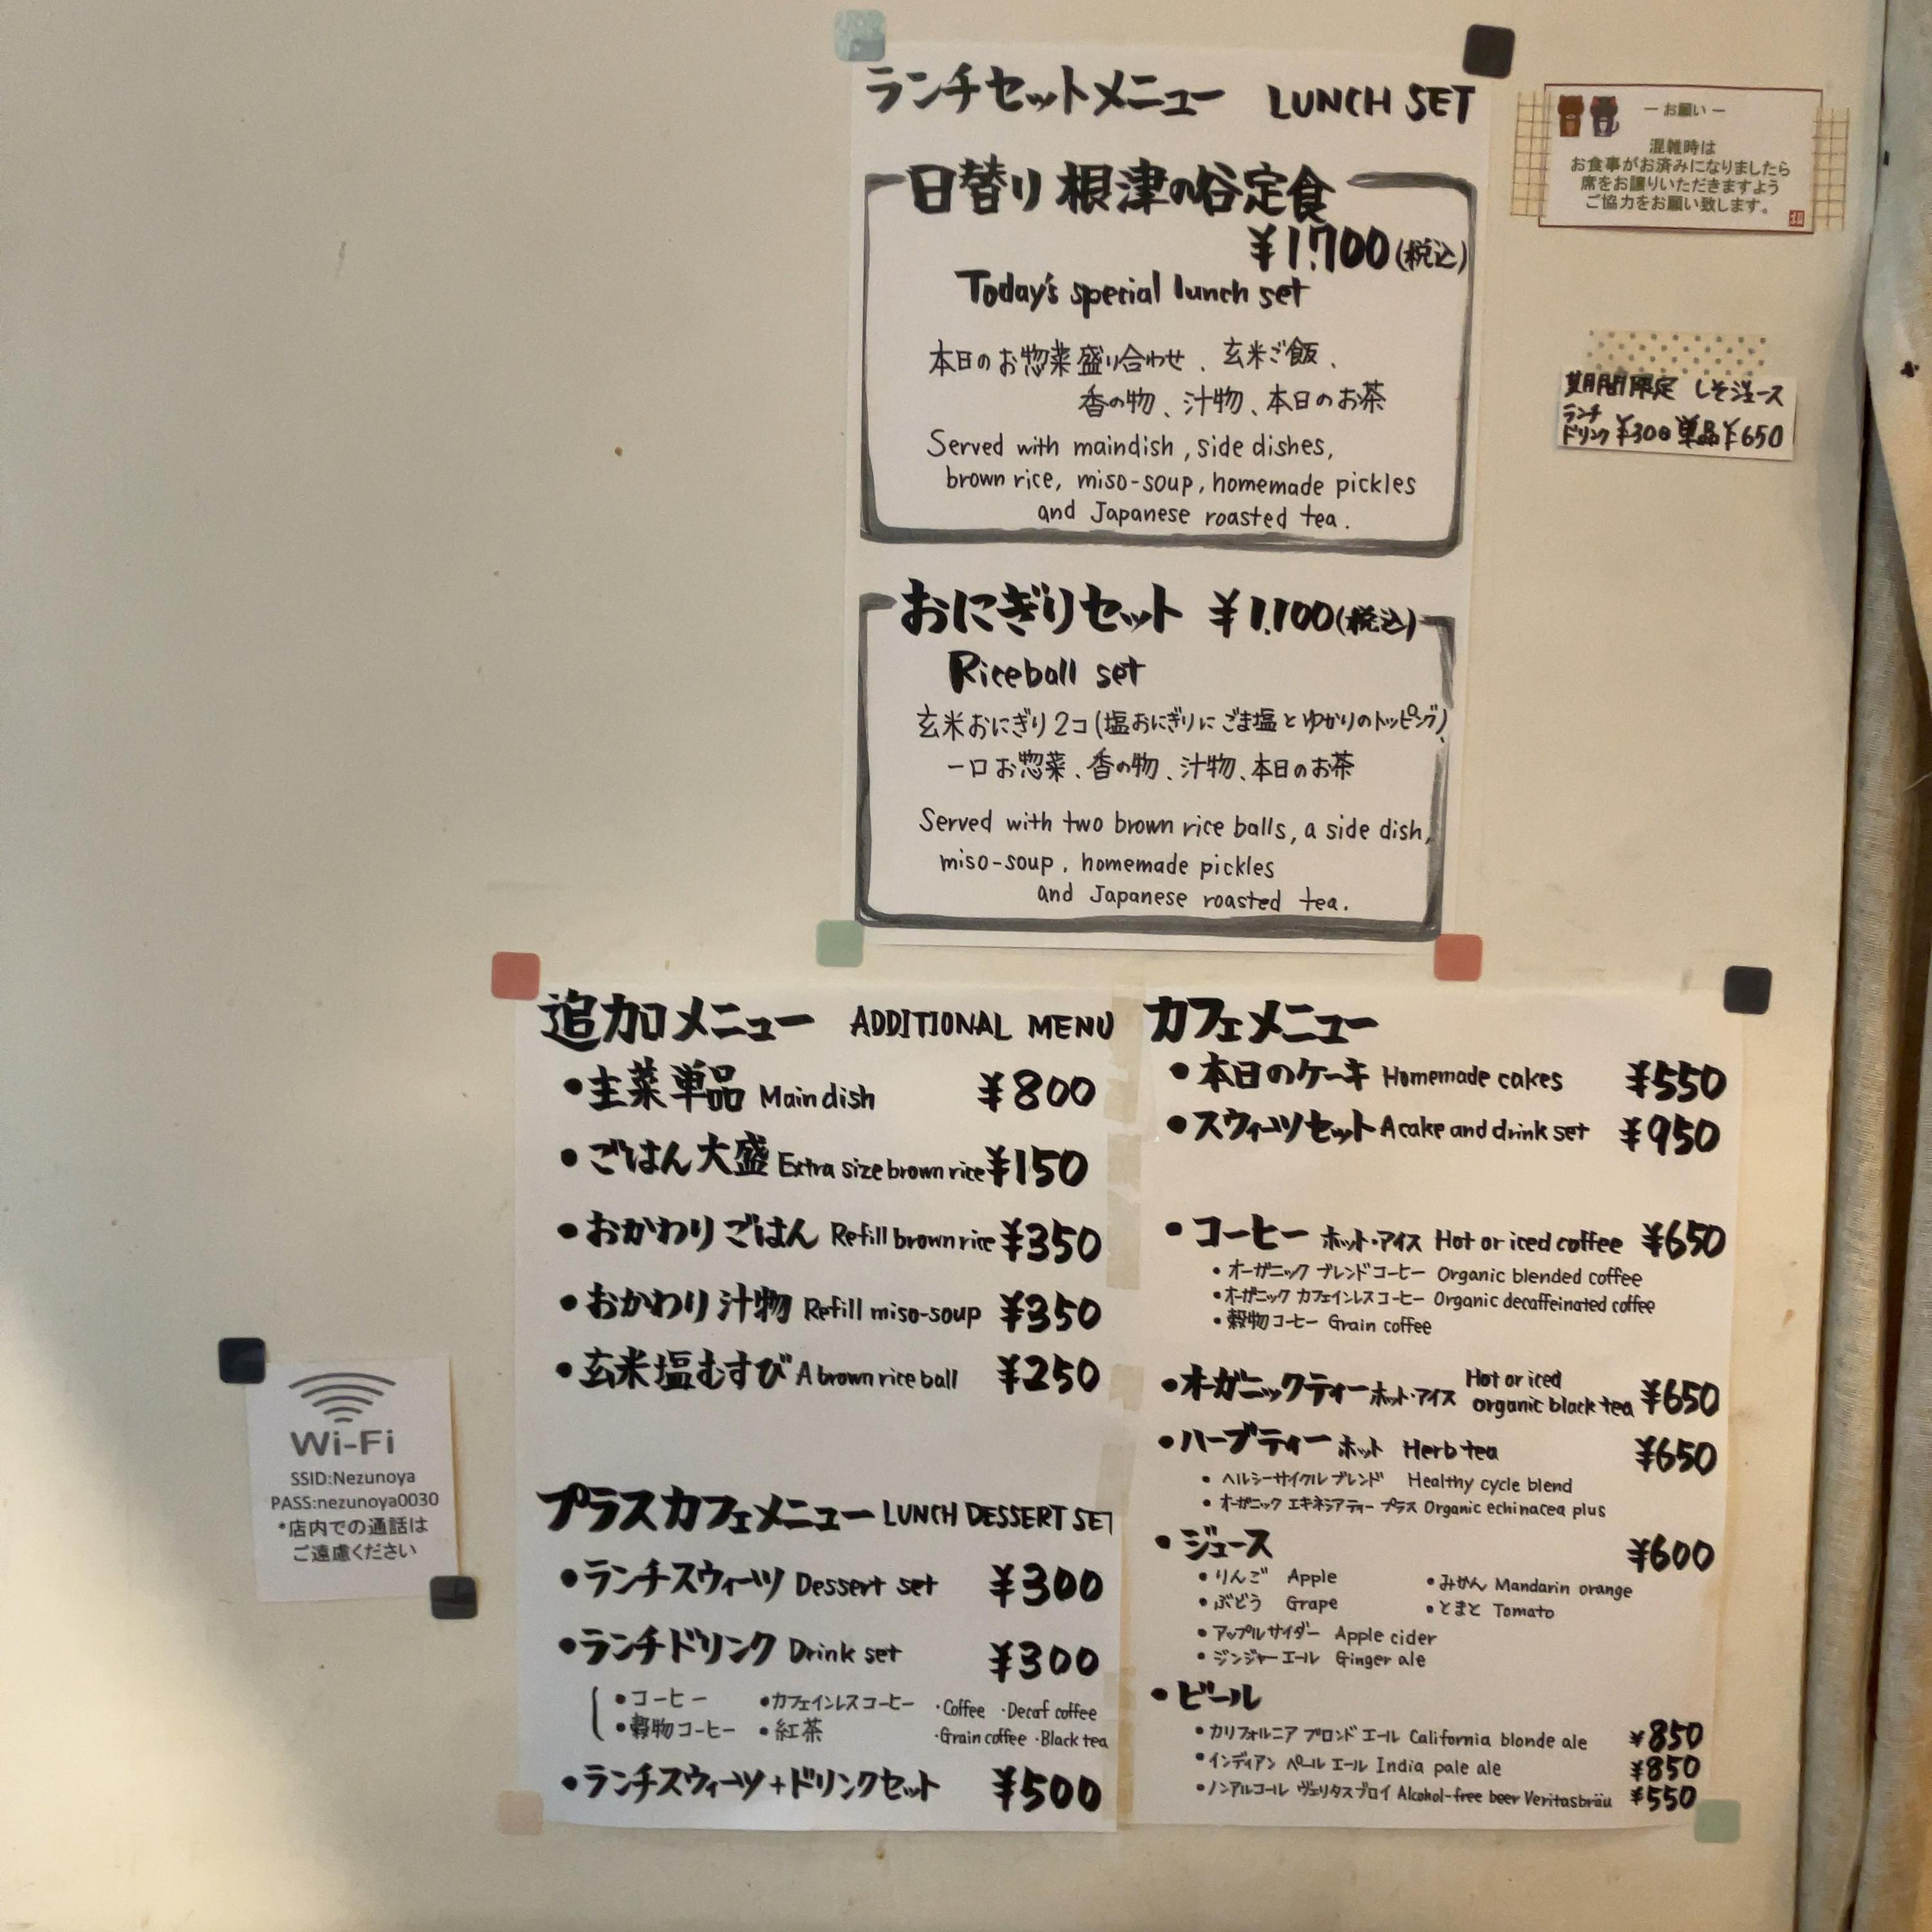 ランチセットメニュー LUNCH SET
日替り 根津の谷定食
¥1,700(税込)
Today's special lunch set
本日のお惣菜盛り合わせ、玄米ご飯、
香の物、汁物、本日のお茶
Served with maindish, side dishes,
brown rice, miso-soup, homemade pickles
and Japanese roasted tea.
おにぎりセット ¥1,100(税込)
Riceball set
玄米おにぎり2コ(塩おにぎりにごま塩とゆかりのトッピング)、
一口お惣菜、香の物、汁物、本日のお茶
Served with two brown rice balls, a side dish,
miso-soup, homemade pickles
and Japanese roasted tea.
ー お願い ー
混雑時は
お食事がお済みになりましたら
席をお譲りいただきますよう
ご協力をお願い致します。
期間限定 しそジュース
ランチ
ドリンク ¥300 単品¥650
追加メニュー ADDITIONAL MENU
•主菜単品 Main dish ¥800
•ごはん大盛 Extra size brown rice ¥150
•おかわりごはん Refill brown rice ¥350
•おかわり汁物 Refill miso-soup ¥350
•玄米塩むすび A brown rice ball ¥250
プラスカフェメニュー LUNCH DESSERT SET
•ランチスウィーツ Dessert set ¥300
•ランチドリンク Drink set ¥300
•コーヒー •カフェインレスコーヒー ·Coffee ·Decaf coffee
•穀物コーヒー •紅茶 ·Grain coffee ·Black tea
•ランチスウィーツ+ドリンクセット ¥500
カフェメニュー
•本日のケーキ Homemade cakes ¥550
•スウィーツセット A cake and drink set ¥950
•コーヒー ホット・アイス Hot or iced coffee ¥650
•オーガニック ブレンドコーヒー Organic blended coffee
•オーガニック カフェインレスコーヒー Organic decaffeinated coffee
•穀物コーヒー Grain coffee
•オーガニックティー ホット・アイス Hot or iced organic black tea ¥650
•ハーブティー ホット Herb tea ¥650
•ヘルシーサイクルブレンド Healthy cycle blend
•オーガニック エキネシアティー プラス Organic echinacea plus
•ジュース ¥600
•りんご Apple •みかん Mandarin orange
•ぶどう Grape •とまと Tomato
•アップルサイダー Apple cider
•ジンジャーエール Ginger ale
•ビール
•カリフォルニア ブロンド エール California blonde ale ¥850
•インディアン ペール エール India pale ale ¥850
•ノンアルコール ヴェリタスブロイ Alcohol-free beer Veritasbräu ¥550
Wi-Fi
SSID:Nezunoya
PASS:nezunoya0030
*店内での通話は
ご遠慮ください